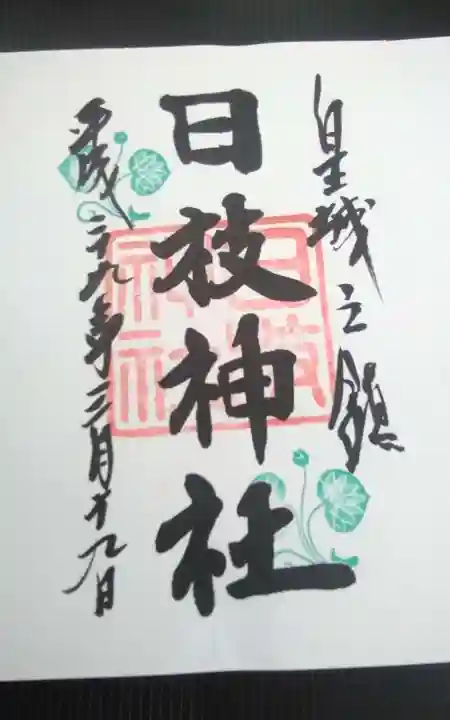 皇城之鎮
日枝神社
日枝神社
平成二十九年三月十九日